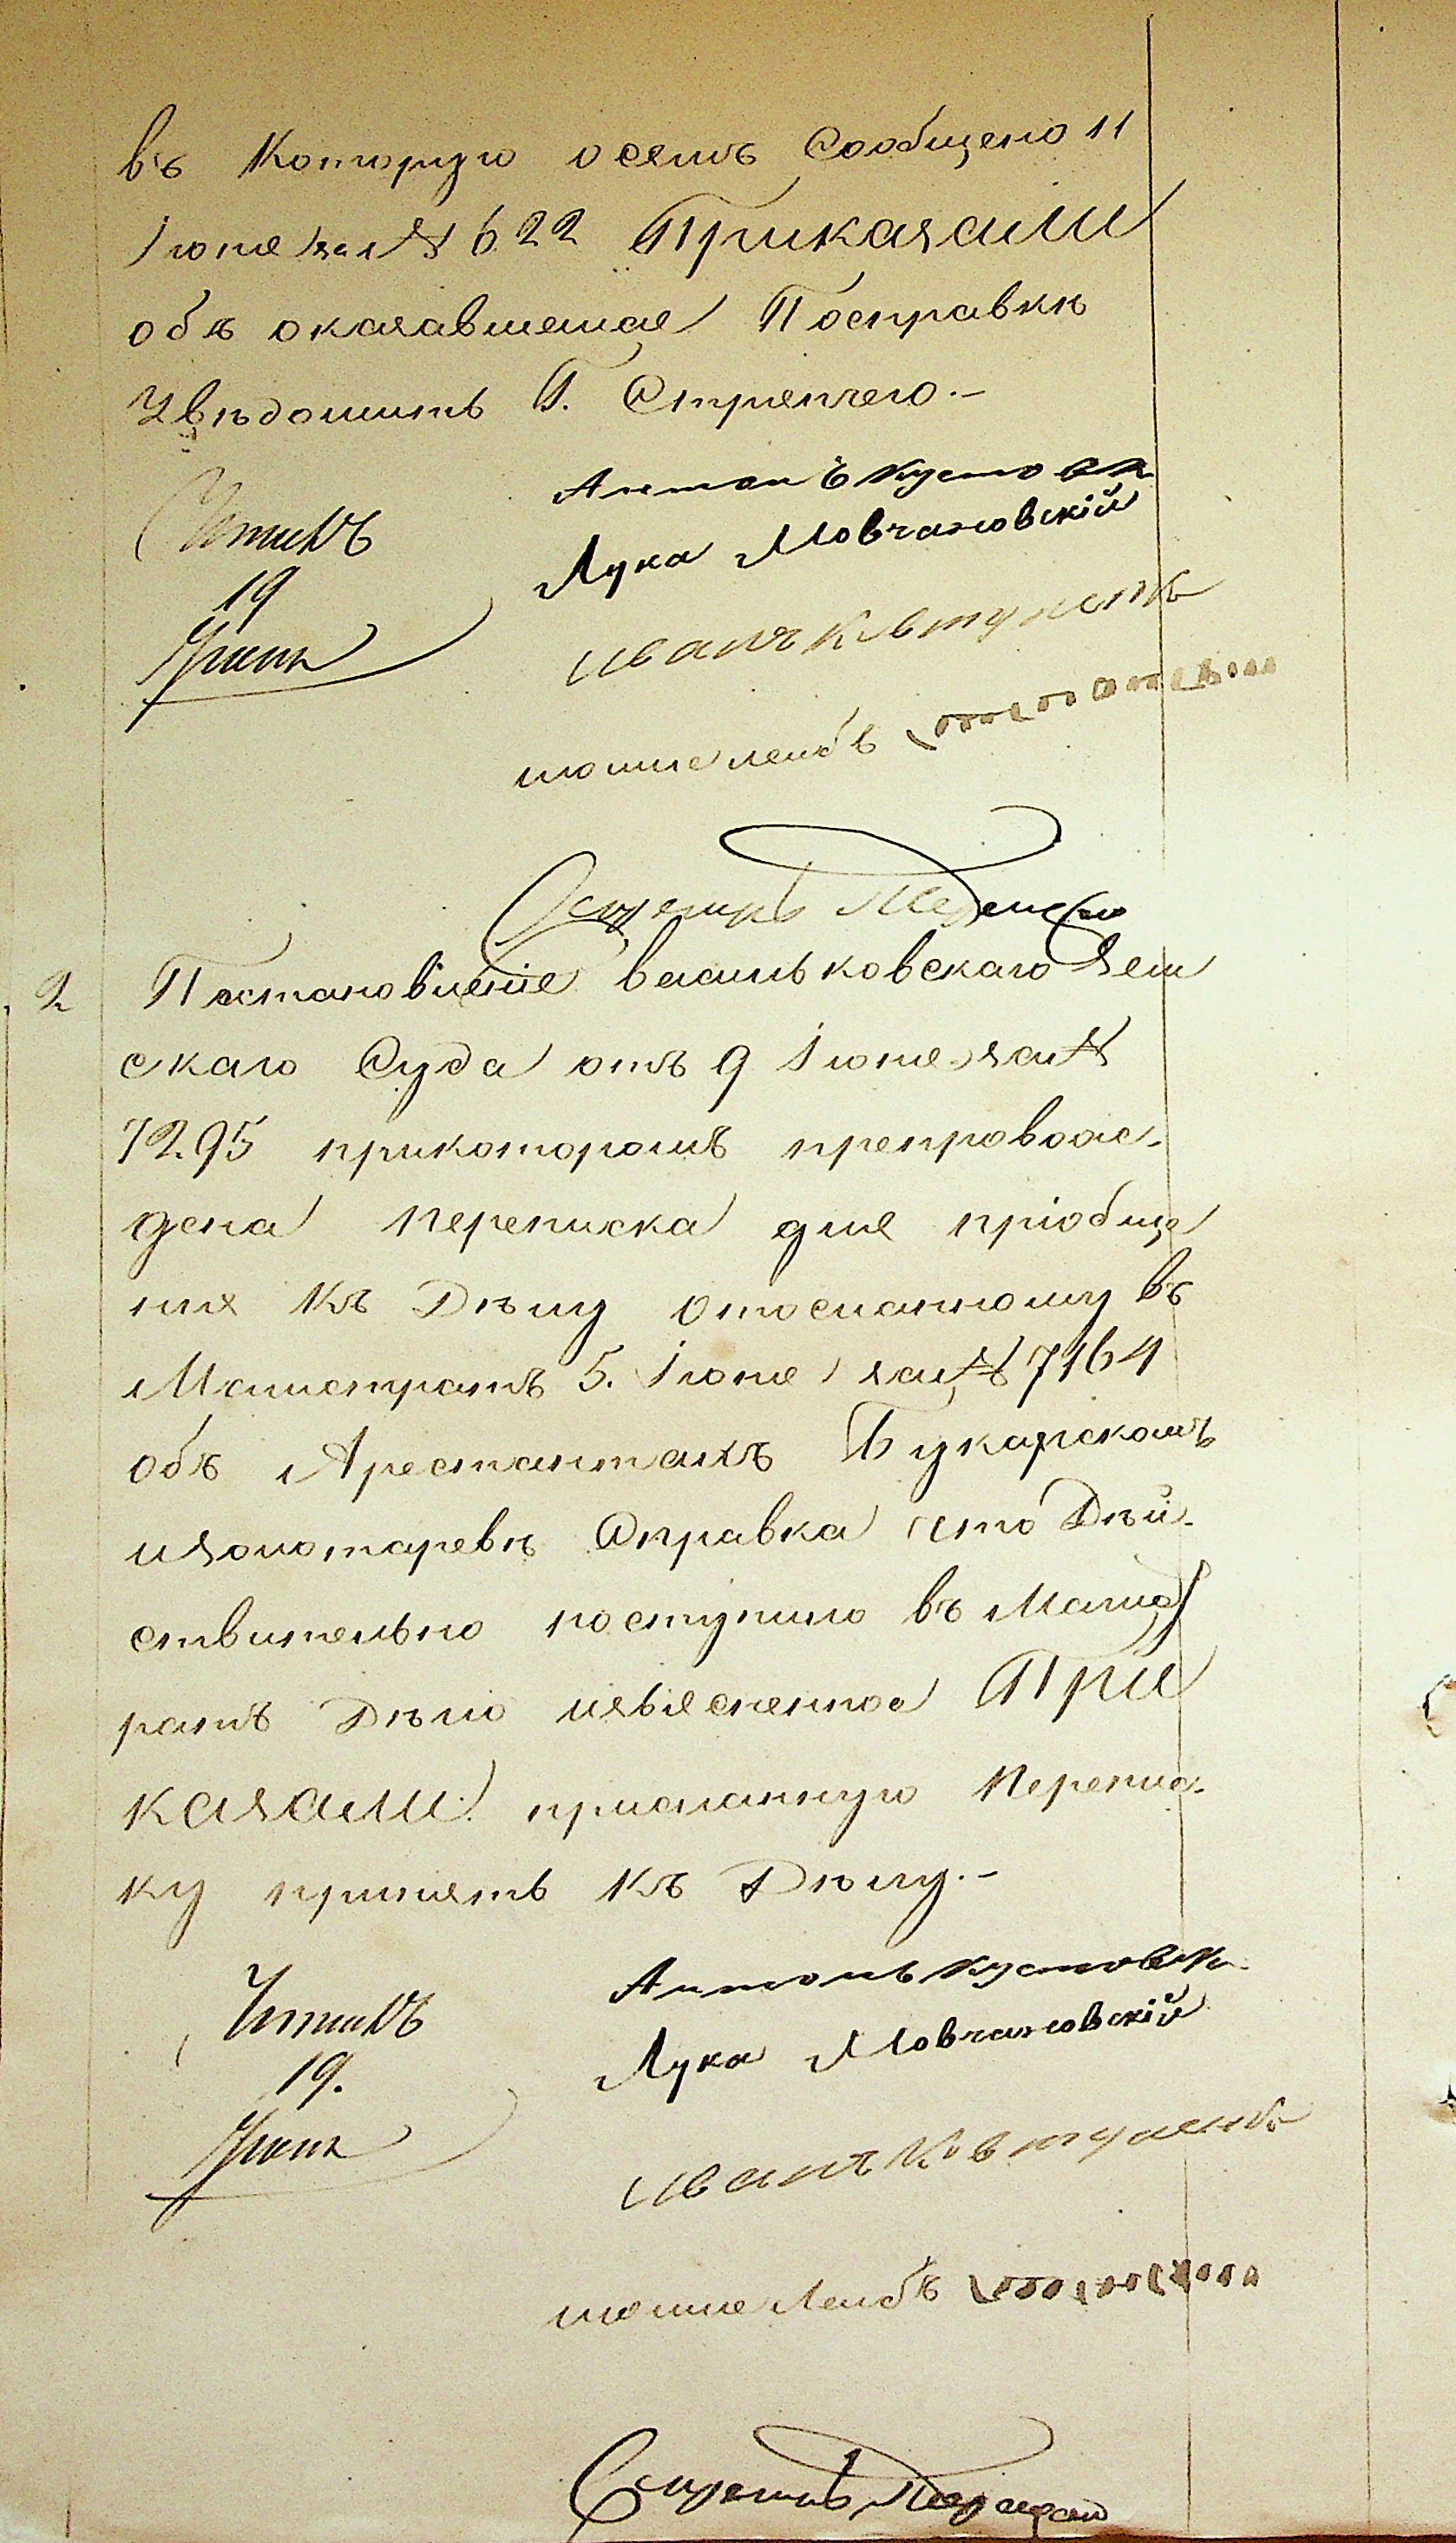 въ которую осемъ Сообщено 11
Іюня за № 622 Приказали
объ оказавшемся Посправкѣ
Увѣдомить Г. Стряпчего.-
Антонъ Кустов
Читалъ
Лука Мовчановскій
19
Іюня
Иванъ Ковтуненко
Секретарь
2 Постановленіе васильковскаго Зем
скаго Суда отъ 9 Іюня за №
7295 прикоторомъ препровож-
дена переписка для пріобще
нія къ Дѣлу отосланному въ
Магистратъ 5. Іюня за № 7164
объ Арестантахъ Букарскомъ
изолотаревѣ Справка что Дѣй-
ствительно поступило въ Магист
ратъ Дѣло изъясненное При
казали присланную Перепис-
ку принять къ Дѣлу.-
Антонъ Кустов
Читалъ
Лука Мовчановскій
19.
Іюня
Иванъ Ковтуненко
Секретарь